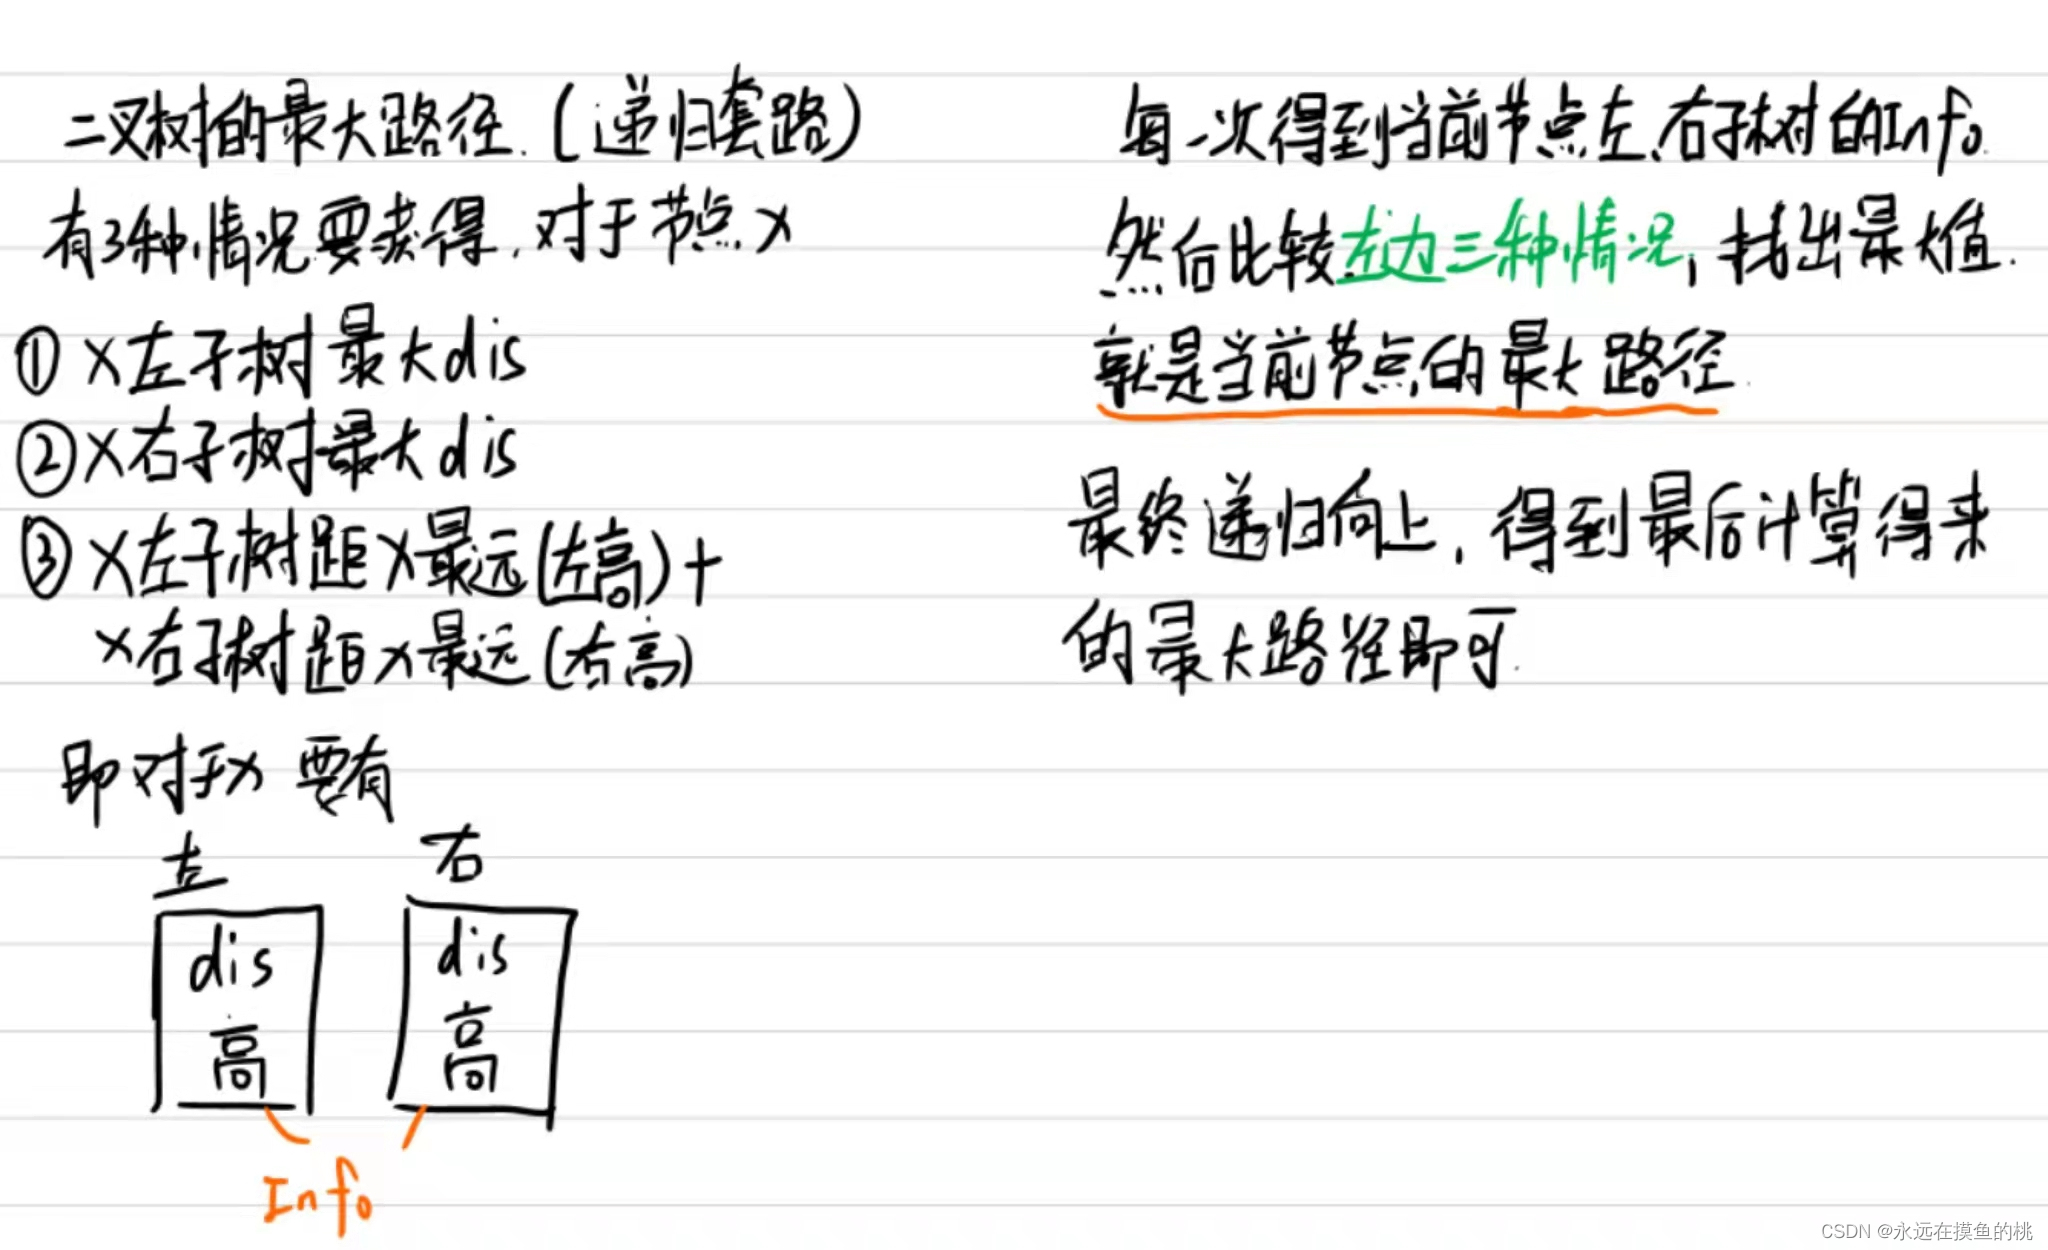 二叉树的最大路径.(递归套路)
有3种情况要获得,对于节点x
① x左子树最大dis
② x右子树最大dis
③ x左子树距x最远(左高)+
x右子树距x最远(右高)
即对于x 要有
左 右
dis dis
高 高
Info
每一次得到当前节点左、右子树的Info.
然后比较左边三种情况,找出最大值.
就是当前节点的最大路径.
最终递归向上,得到最后计算得来
的最大路径即可.
CSDN @永远在摸鱼的桃